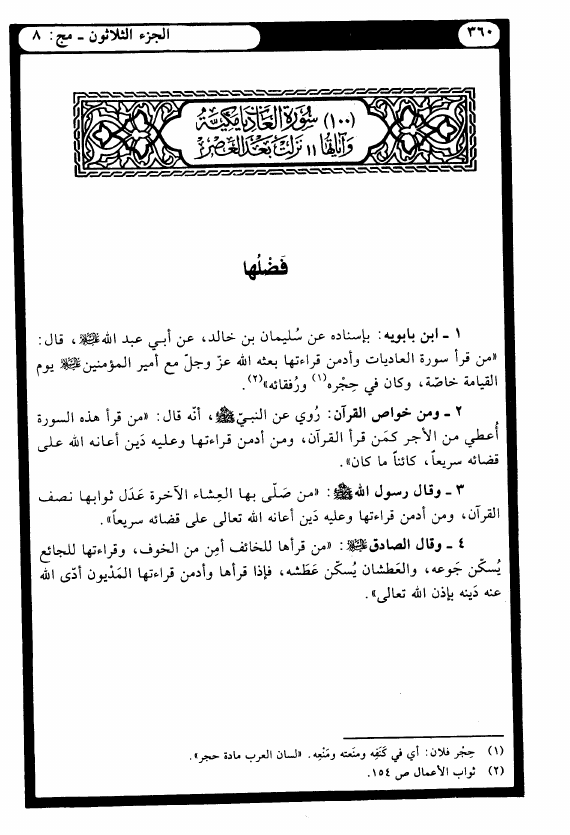 ٣٦٠
الجزء الثلاثون ـ مج: ٨
(١٠٠) سُورَة العَاديَا مَكيَّة
وَآيَاتُهَا ١١ نَزَلَتْ بَعْدَ العَصْرِ
فَضْلُها
١ ـ ابن بابويه: بإسناده عن سُليمان بن خالد، عن أبي عبد الله ﷺ، قال:
«من قرأ سورة العاديات وأدمن قراءتها بعثه الله عزّ وجلّ مع أمير المؤمنين يوم
القيامة خاصّة، وكان في حِجْره(١) ورُفقائه»(٢).
٢ ـ ومن خواص القرآن: رُوي عن النبيّ ﷺ، أنّه قال: «من قرأ هذه السورة
أُعطي من الأجر كمَن قرأ القرآن، ومن أدمن قراءتها وعليه دَين أعانه الله على
قضائه سريعاً، كائناً ما كان».
٣ ـ وقال رسول الله ﷺ: «من صَلّى بها العِشاء الآخرة عَدَل ثوابها نصف
القرآن، ومن أدمن قراءتها وعليه دَين أعانه الله تعالى على قضائه سريعاً».
٤ ـ وقال الصادق: «من قرأها للخائف أمِن من الخوف، وقراءتها للجائع
يُسكّن جَوعه، والعَطشان يُسكّن عَطَشه، فإذا قرأها وأدمن قراءتها المَدْيون أدّى الله
عنه دَينه بإذن الله تعالى».
(١) حِجْر فلان: أي في كَنَفِه ومنَعته ومَنْعِه. «لسان العرب مادة حجر».
(٢) ثواب الأعمال ص ١٥٤.